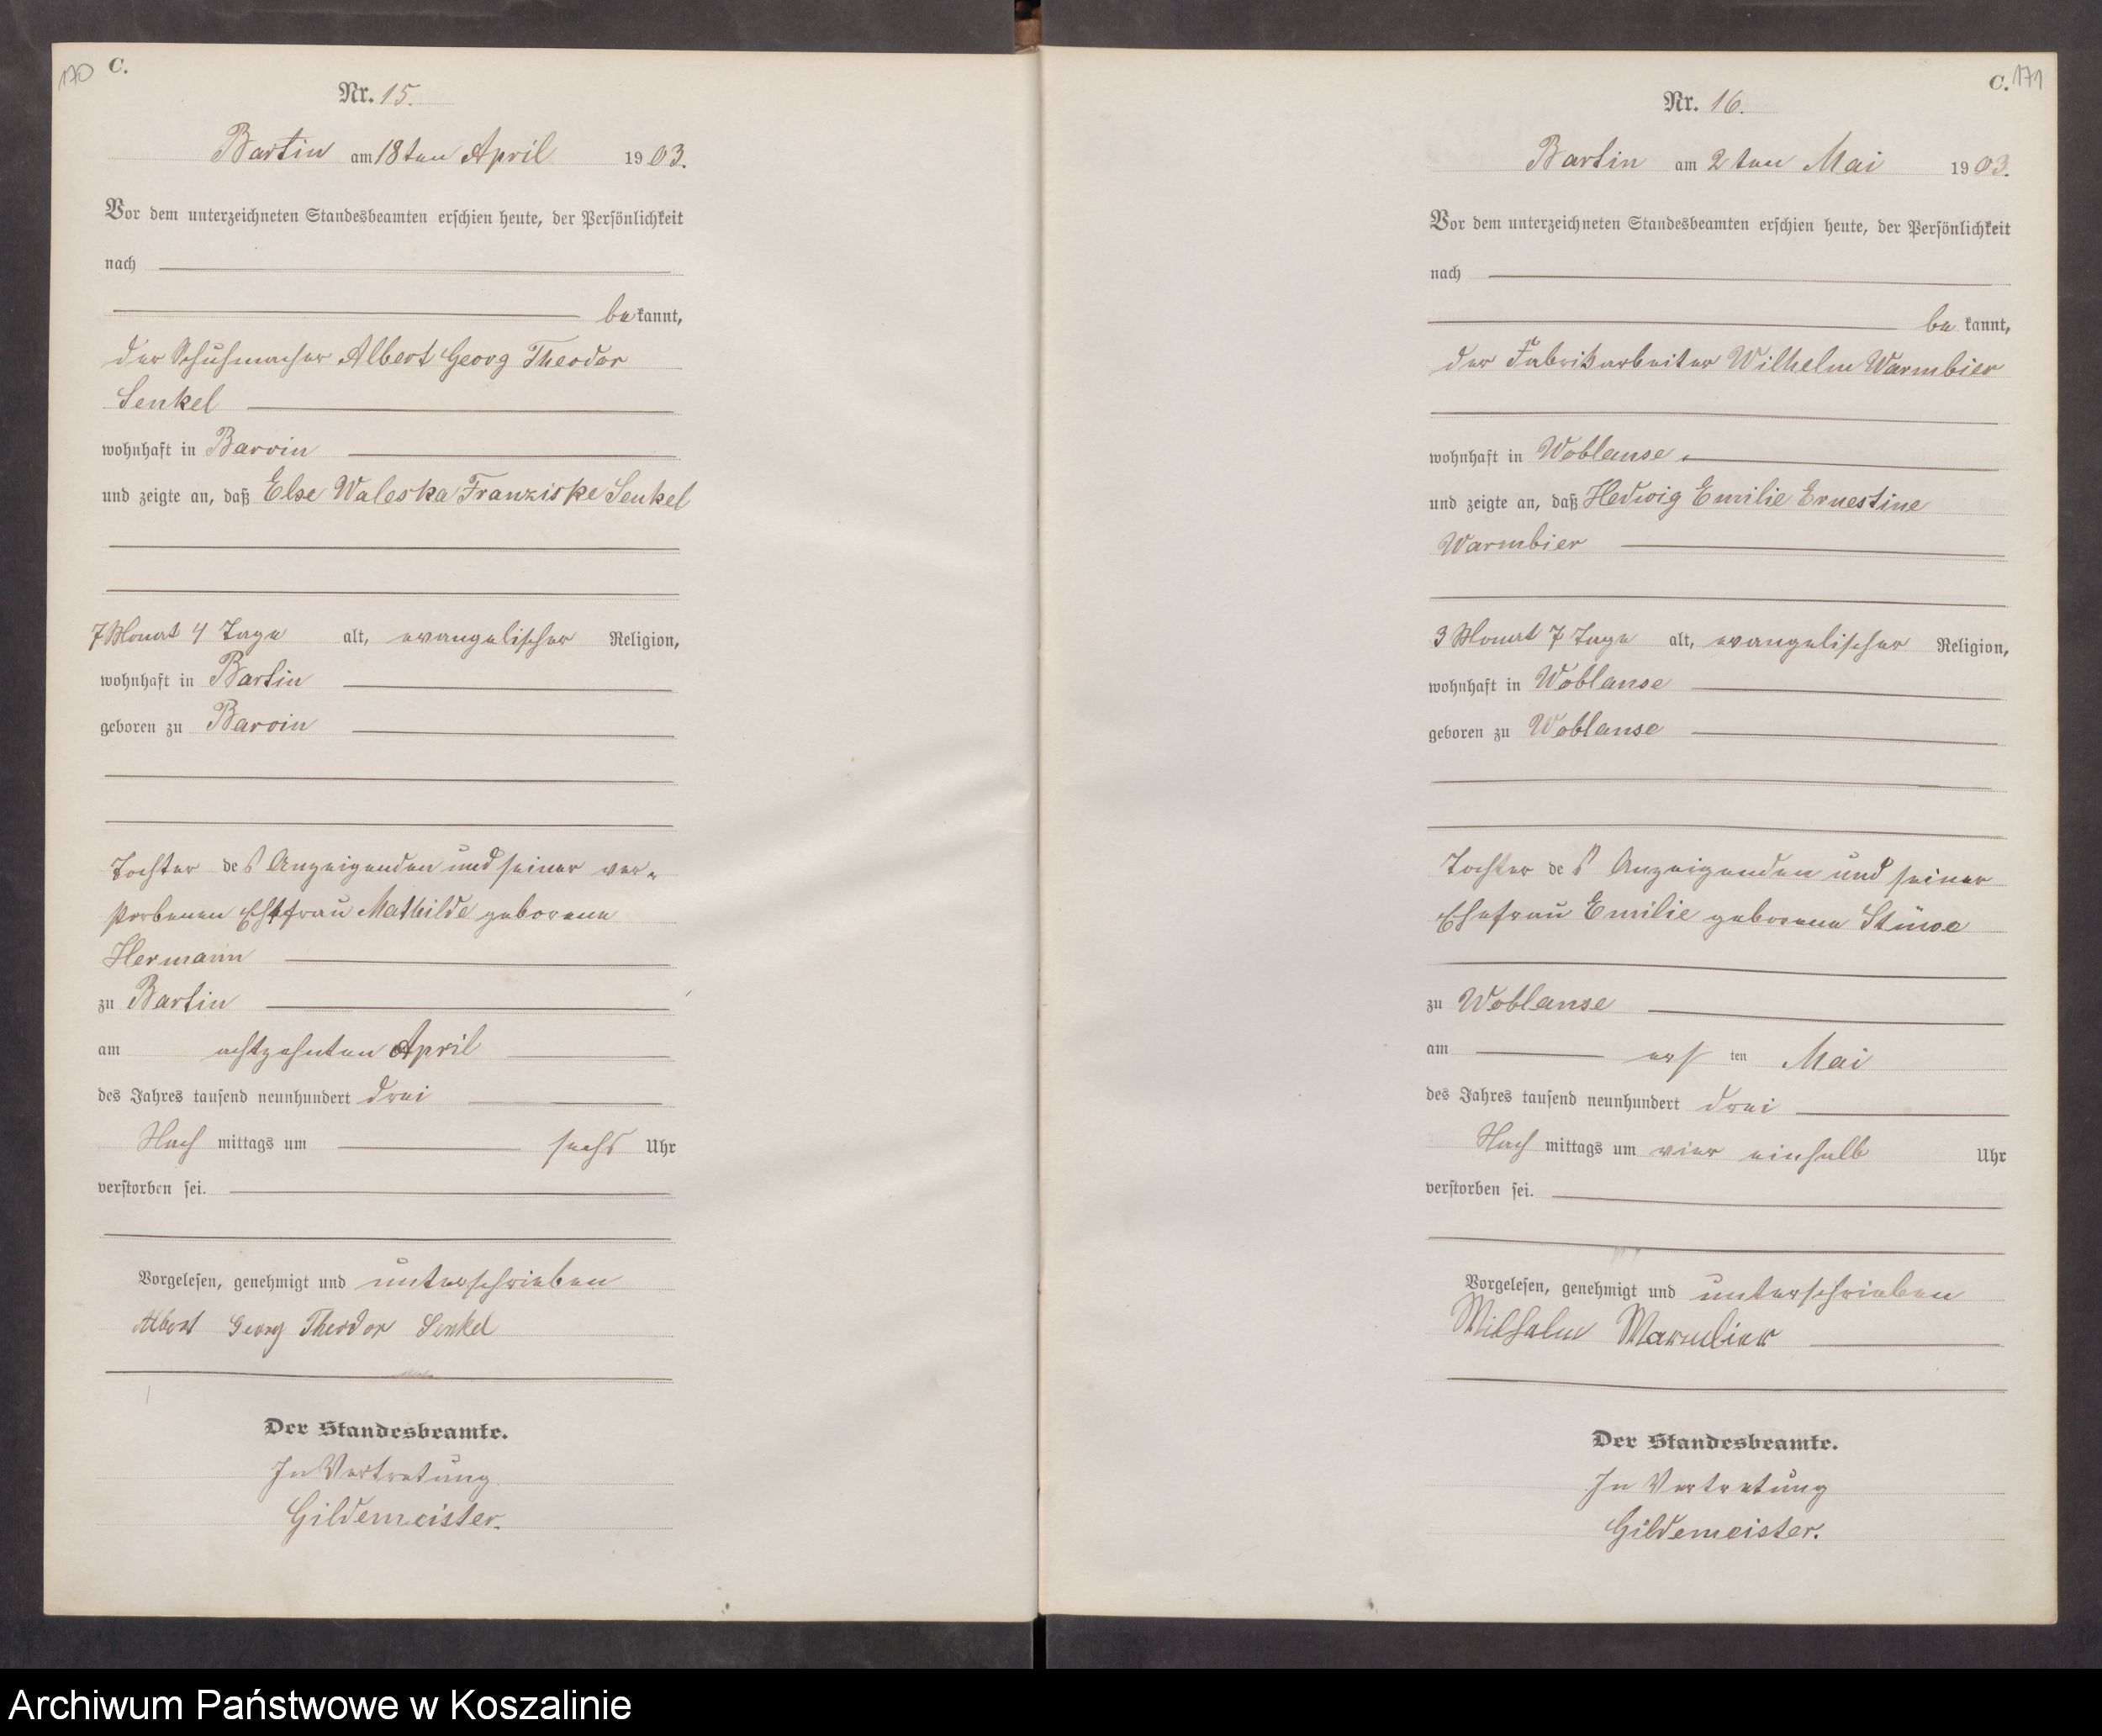 170 C.
Nr. 15.
Bartin am 18ten April 1903.
Vor dem unterzeichneten Standesbeamten erschien heute, der Persönlichkeit
nach
bekannt,
der Schuhmacher Albert Georg Theodor
Senkel
wohnhaft in Barvin
und zeigte an, daß Else Waleska Franziske Senkel
7 Monat 4 Tage alt, evangelischer Religion,
wohnhaft in Bartin
geboren zu Barvin
Tochter des Anzeigenden und seiner ver-
storbenen Ehefrau Mathilde geborene
Hermann
zu Bartin
am achtzehnten April
des Jahres tausend neunhundert drei
Nach mittags um sechs Uhr
verstorben sei.
Vorgelesen, genehmigt und unterschrieben
Albert Georg Theodor Senkel
Der Standesbeamte.
In Vertretung
Gildemeister.
C. 171
Nr. 16.
Bartin am 2ten Mai 1903.
Vor dem unterzeichneten Standesbeamten erschien heute, der Persönlichkeit
nach
bekannt,
der Fabrikarbeiter Wilhelm Warmbier
wohnhaft in Woblanse
und zeigte an, daß Hedwig Emilie Ernestine
Warmbier
3 Monat 7 Tage alt, evangelischer Religion,
wohnhaft in Woblanse
geboren zu Woblanse
Tochter des Anzeigenden und seiner
Ehefrau Emilie geborene Stüwe
zu Woblanse
am ersten Mai
des Jahres tausend neunhundert drei
Nach mittags um vier einhalb Uhr
verstorben sei.
Vorgelesen, genehmigt und unterschrieben
Wilhelm Warmbier
Der Standesbeamte.
In Vertretung
Gildemeister.
Archiwum Państwowe w Koszalinie